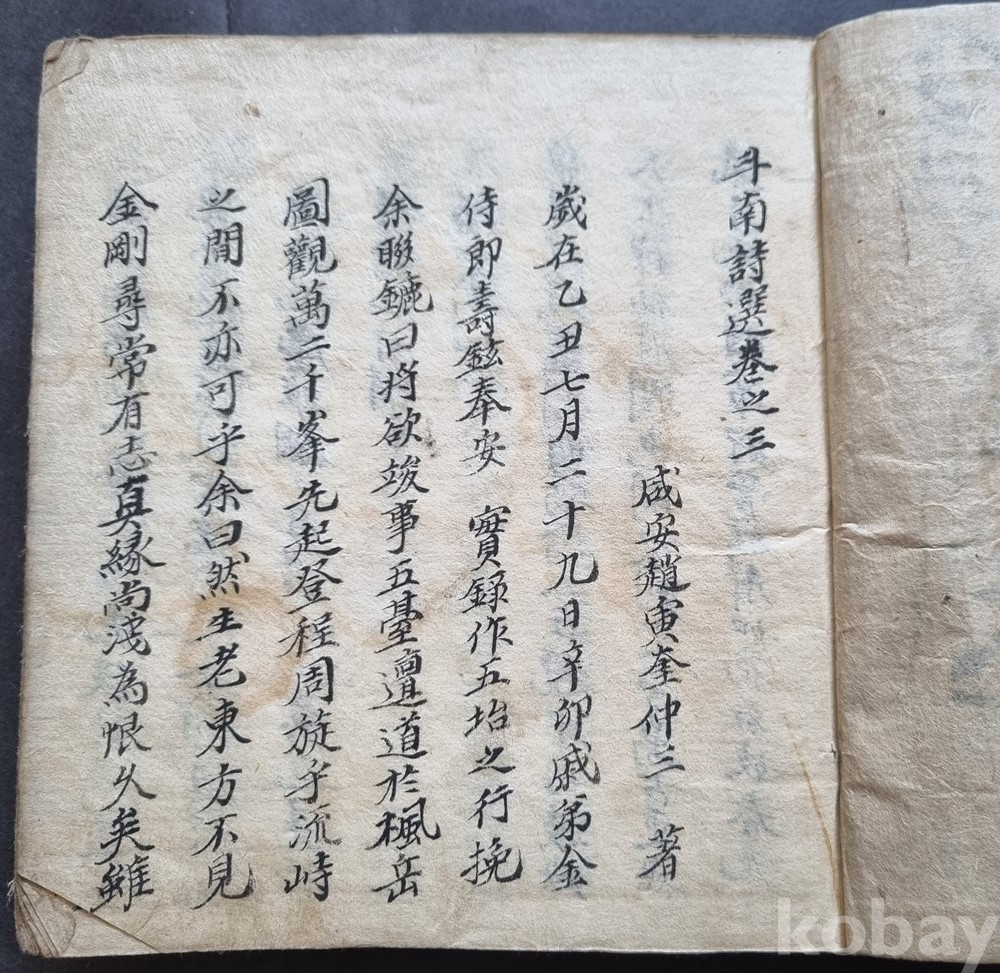 斗南詩選卷之三
咸安趙寅奎仲三 著
歲在乙丑七月二十九日辛卯戚弟金
侍郎壽鉉奉安 實錄作五坮之行挽
余聯鑣曰將欲竣事五臺邅道於楓岳
圖觀萬二千峯先起登程周旋乎流峙
之間不亦可乎余曰然生老東方不見
金剛尋常有志真緣尚淺為恨久矣雖
kobay